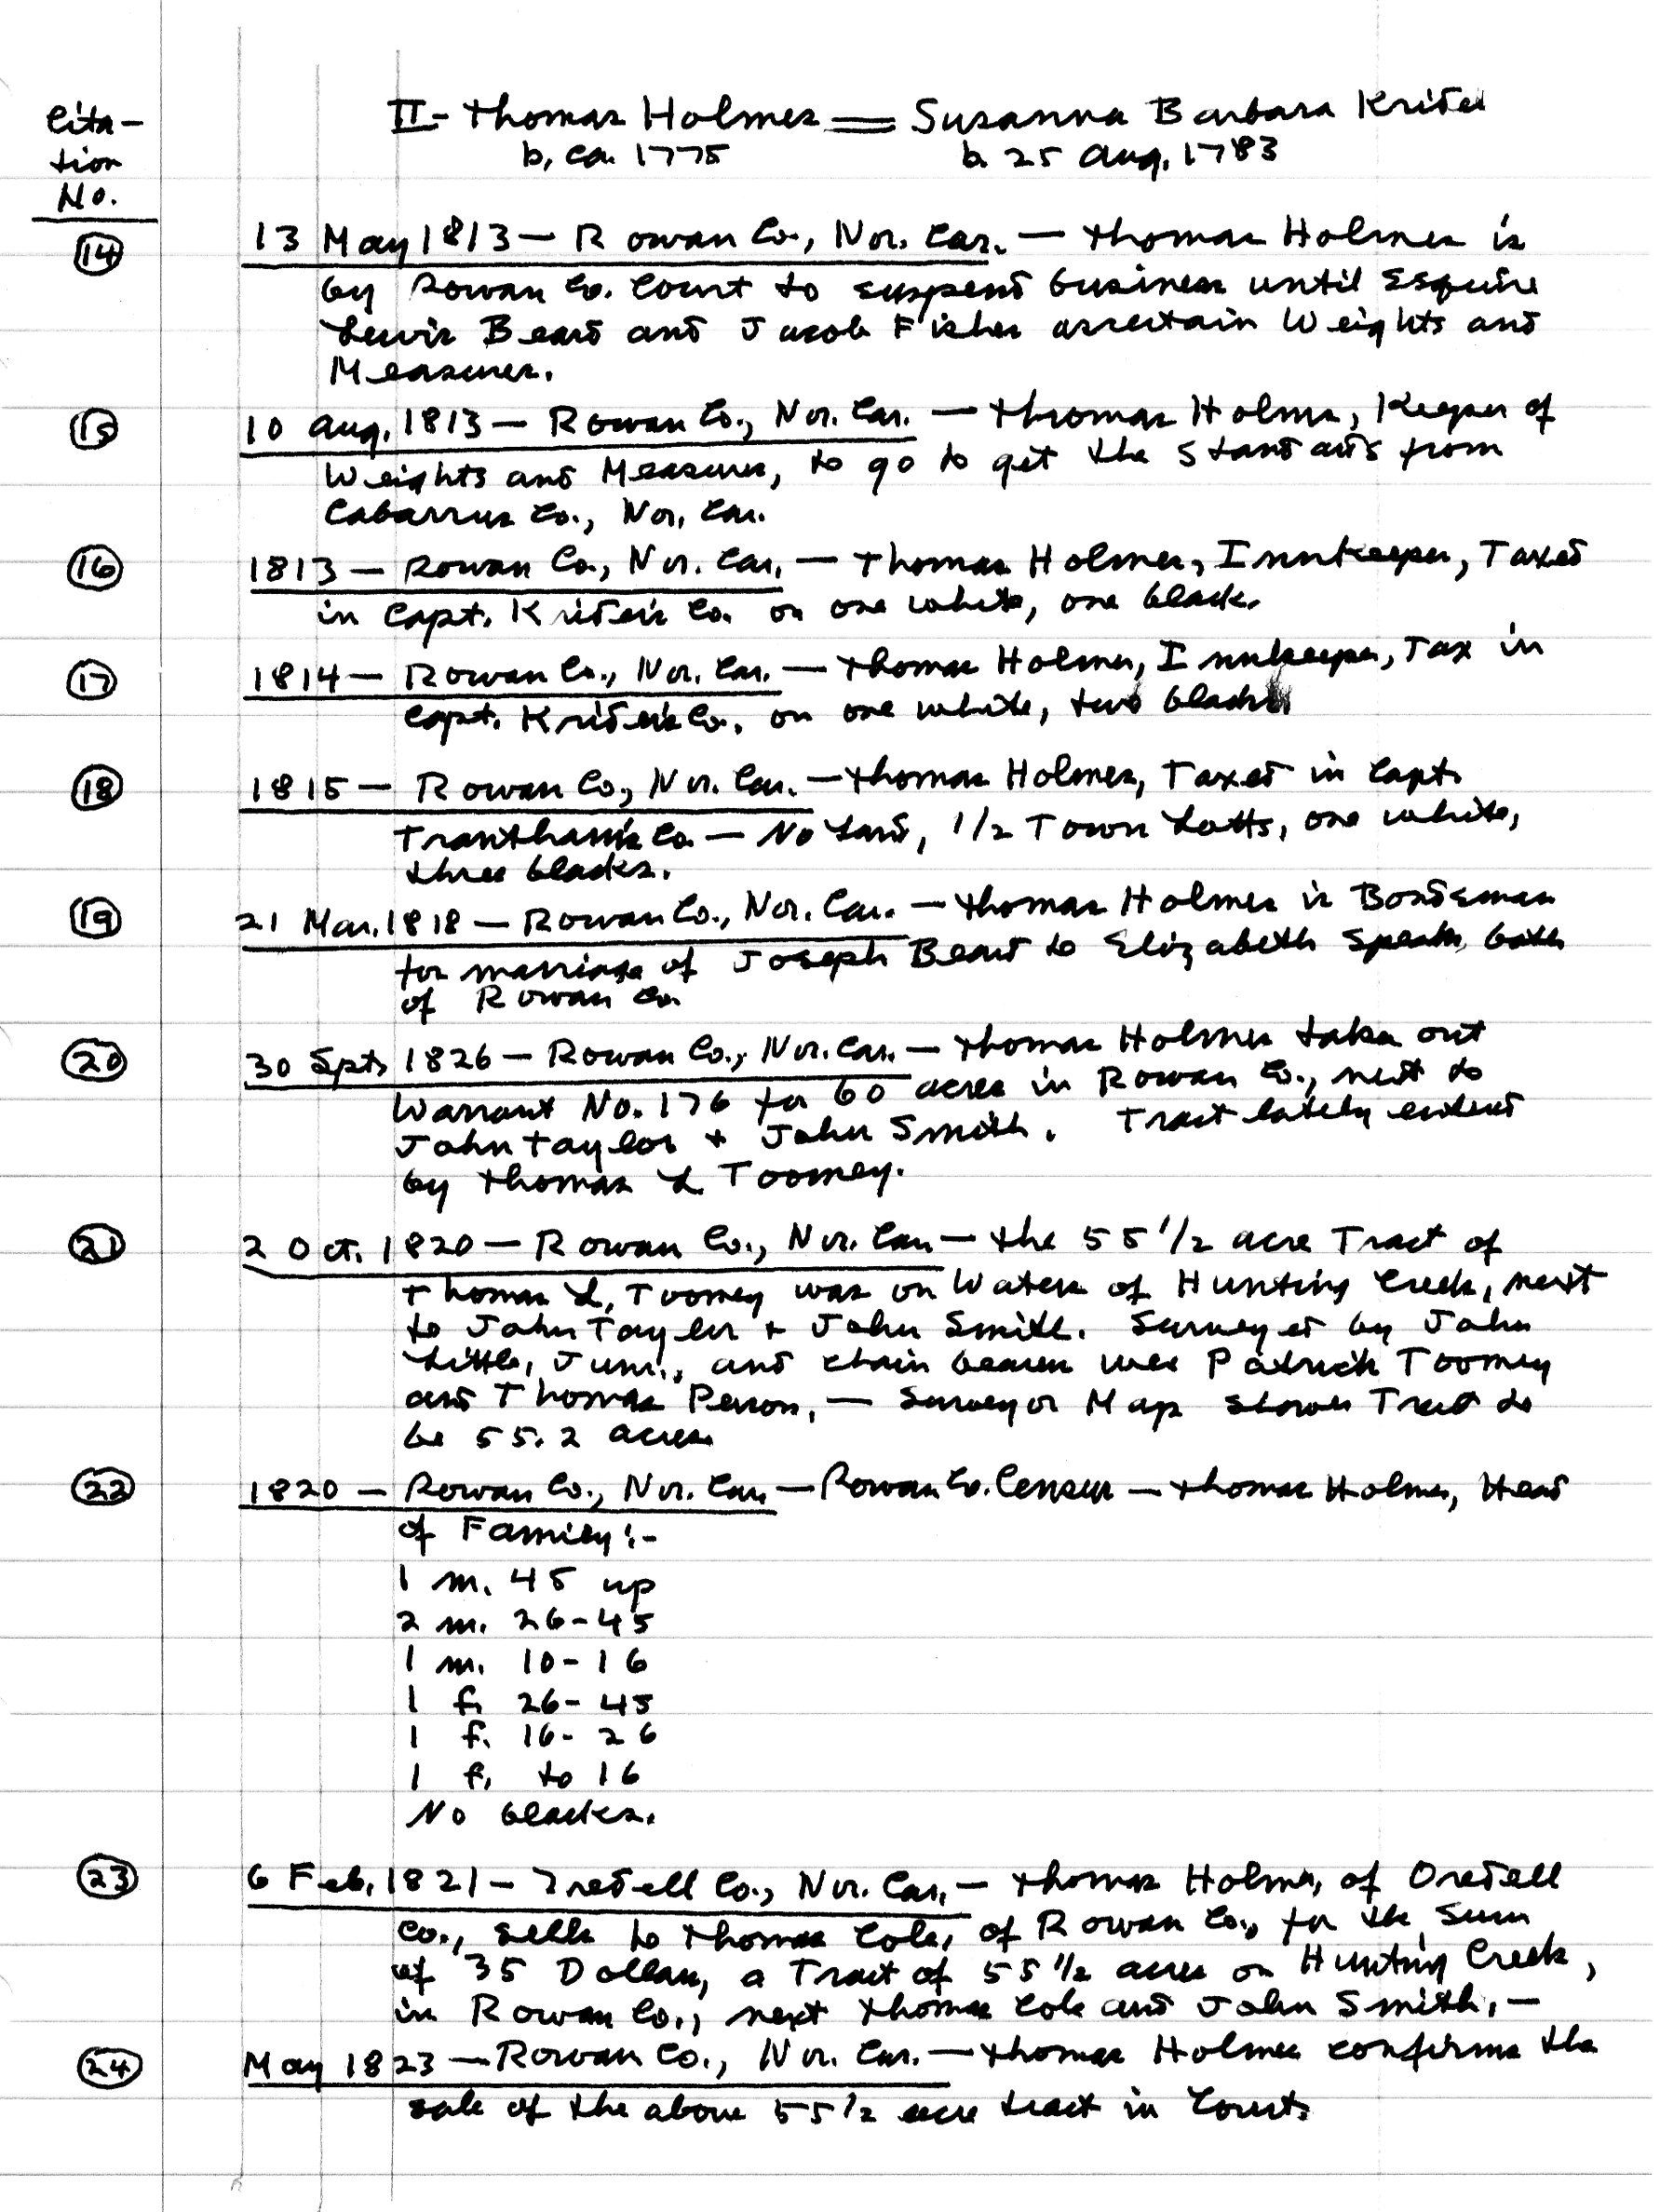 Cita-
tion
No.
II- Thomas Holmes = Susanna Barbara Krider
b. ca. 1775 b. 25 Aug. 1783
(14) 13 May 1813 — Rowan Co., Nor. Car. — Thomas Holmes is
by Rowan Co. Court to suspend business until Esquire
Lewis Beard and Jacob Fisher ascertain Weights and
Measures.
(15) 10 Aug. 1813 — Rowan Co., Nor. Car. — Thomas Holmes, Keeper of
Weights and Measures, to go to get the Standards from
Cabarrus Co., Nor. Car.
(16) 1813 — Rowan Co., Nor. Car. — Thomas Holmes, Innkeeper, Taxed
in Capt. Krider's Co. on one white, one black.
(17) 1814 — Rowan Co., Nor. Car. — Thomas Holmes, Innkeeper, Tax in
Capt. Krider's Co. on one white, two blacks
(18) 1815 — Rowan Co., Nor. Car. — Thomas Holmes, Taxed in Capt.
Trantham's Co. — No Land, 1/2 Town Lotts, one white,
three blacks.
(19) 21 Mar. 1818 — Rowan Co., Nor. Car. — Thomas Holmes is Bondsman
for marriage of Joseph Beard to Elizabeth Speaks, both
of Rowan Co.
(20) 30 Sept. 1826 — Rowan Co., Nor. Car. — Thomas Holmes takes out
Warrant No. 176 for 60 acres in Rowan Co., next to
John Taylor + John Smith. Tract lately
by Thomas L Toomey.
(21) 2 Oct. 1820 — Rowan Co., Nor. Car — the 55 1/2 acre Tract of
Thomas L. Toomey was on Waters of Hunting Creek, next
to John Taylor + John Smith. Surveyed by John
Little, Junr., and chain bearers were Patrick Toomey
and Thomas Person. — Surveyor Map shows Tract to
be 55.2 acres
(22) 1820 — Rowan Co., Nor. Car. — Rowan Co. Census — Thomas Holmes, Head
of Family:-
1 m. 45 up
2 m. 26-45
1 m. 10-16
1 f. 26-45
1 f. 16-26
1 f. to 16
No blacks.
(23) 6 Feb. 1821 — Iredell Co., Nor. Car. — Thomas Holmes, of Iredell
Co., sells to Thomas Cole, of Rowan Co., for the Sum
of 35 Dollars, a Tract of 55 1/2 acres on Hunting Creek,
in Rowan Co., next Thomas Cole and John Smith. —
(24) May 1823 — Rowan Co., Nor. Car. — Thomas Holmes confirms the
sale of the above 55 1/2 acre tract in Court.